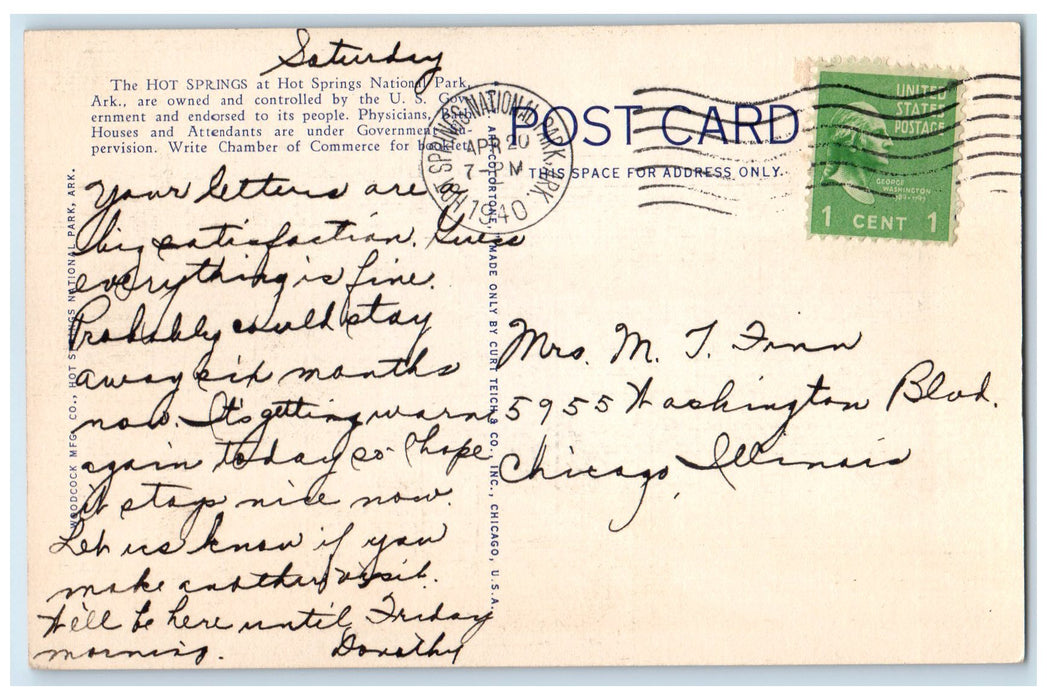 Saturday
The HOT SPRINGS at Hot Springs National Park,
Ark., are owned and controlled by the U. S. Gov-
ernment and endorsed to its people. Physicians, Bath
Houses and Attendants are under Government Su-
pervision. Write Chamber of Commerce for booklet.
Your letters are a
big satisfaction. Guess
everything is fine.
Probably could stay
away six months
now. It's getting warm
again today so I hope
it stays nice now.
Let us know if you
make another visit.
We'll be here until Friday
morning. Dorothy
WOODCOCK MFG. CO., HOT SPRINGS NATIONAL PARK, ARK.
ART-COLORTONE, MADE ONLY BY CURT TEICH & CO., INC., CHICAGO, U.S.A.
HOT SPRINGS NATIONAL PARK, ARK.
APR 20
7 PM
1940
POST CARD
THIS SPACE FOR ADDRESS ONLY.
UNITED
STATES
POSTAGE
GEORGE
WASHINGTON
1789-1797
1 CENT 1
Mrs. M. T. Finn
5955 Washington Blvd.
Chicago, Illinois